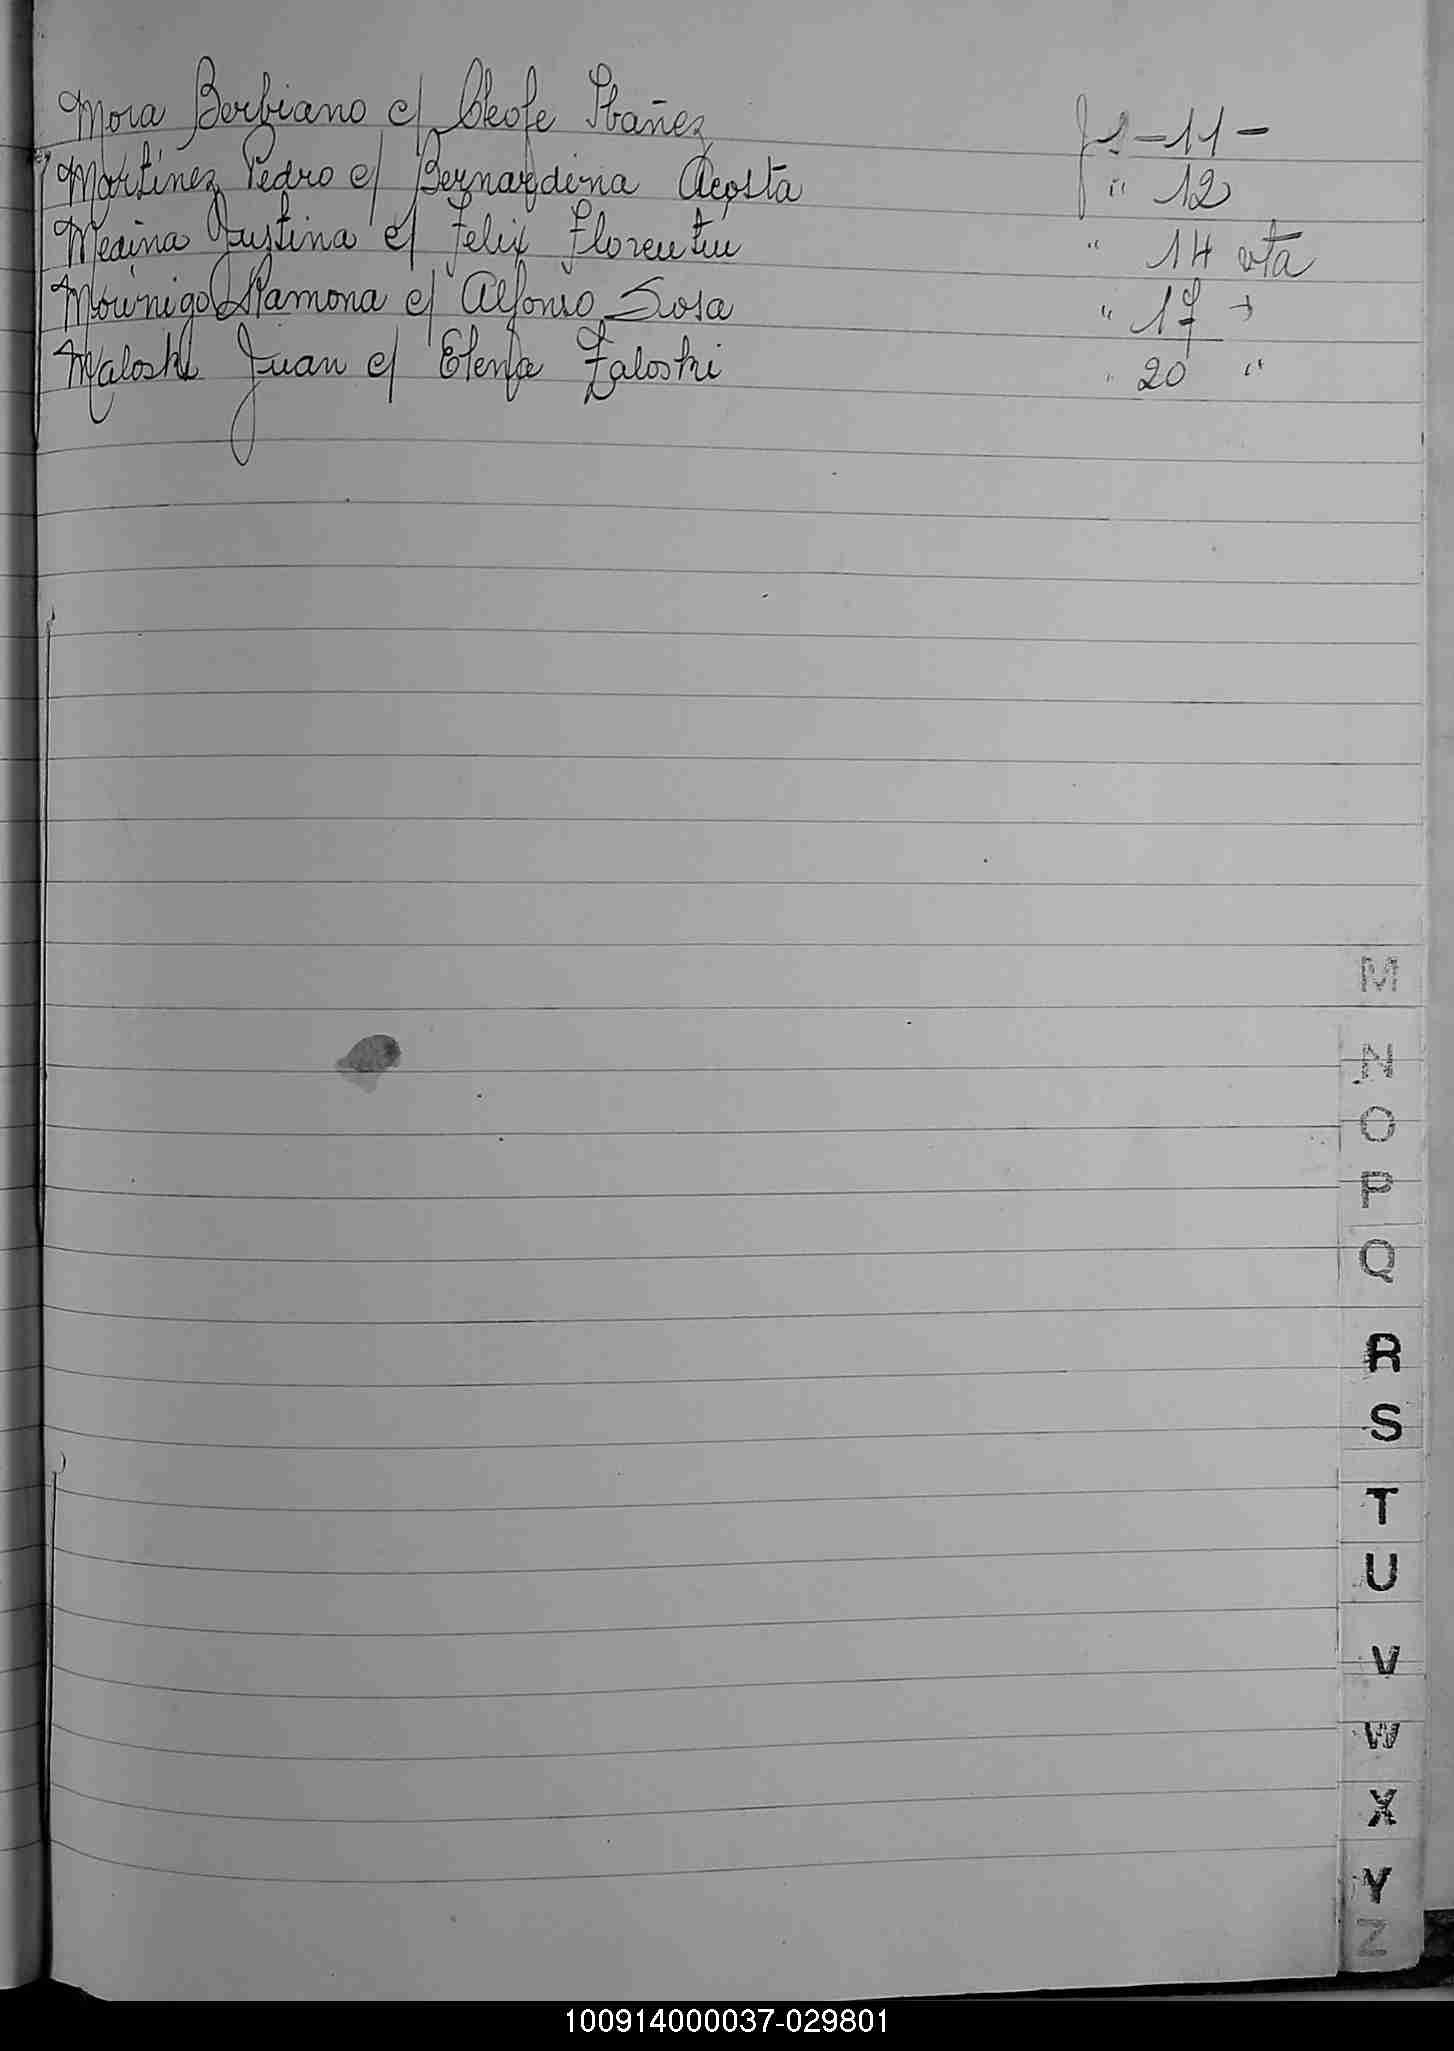 Mora Berbiano c/ Cleofe Ibañez Fs. - 11 -
Martinez Pedro c/ Bernardina Acosta " 12
Medina Justina c/ Felix Florentin " 14 vta
Mourinigo Ramona c/ Alfonso Sosa " 17
Maloski Juan c/ Elena Zaloski " 20 "
M
N
O
P
Q
R
S
T
U
V
W
X
Y
Z
100914000037-029801